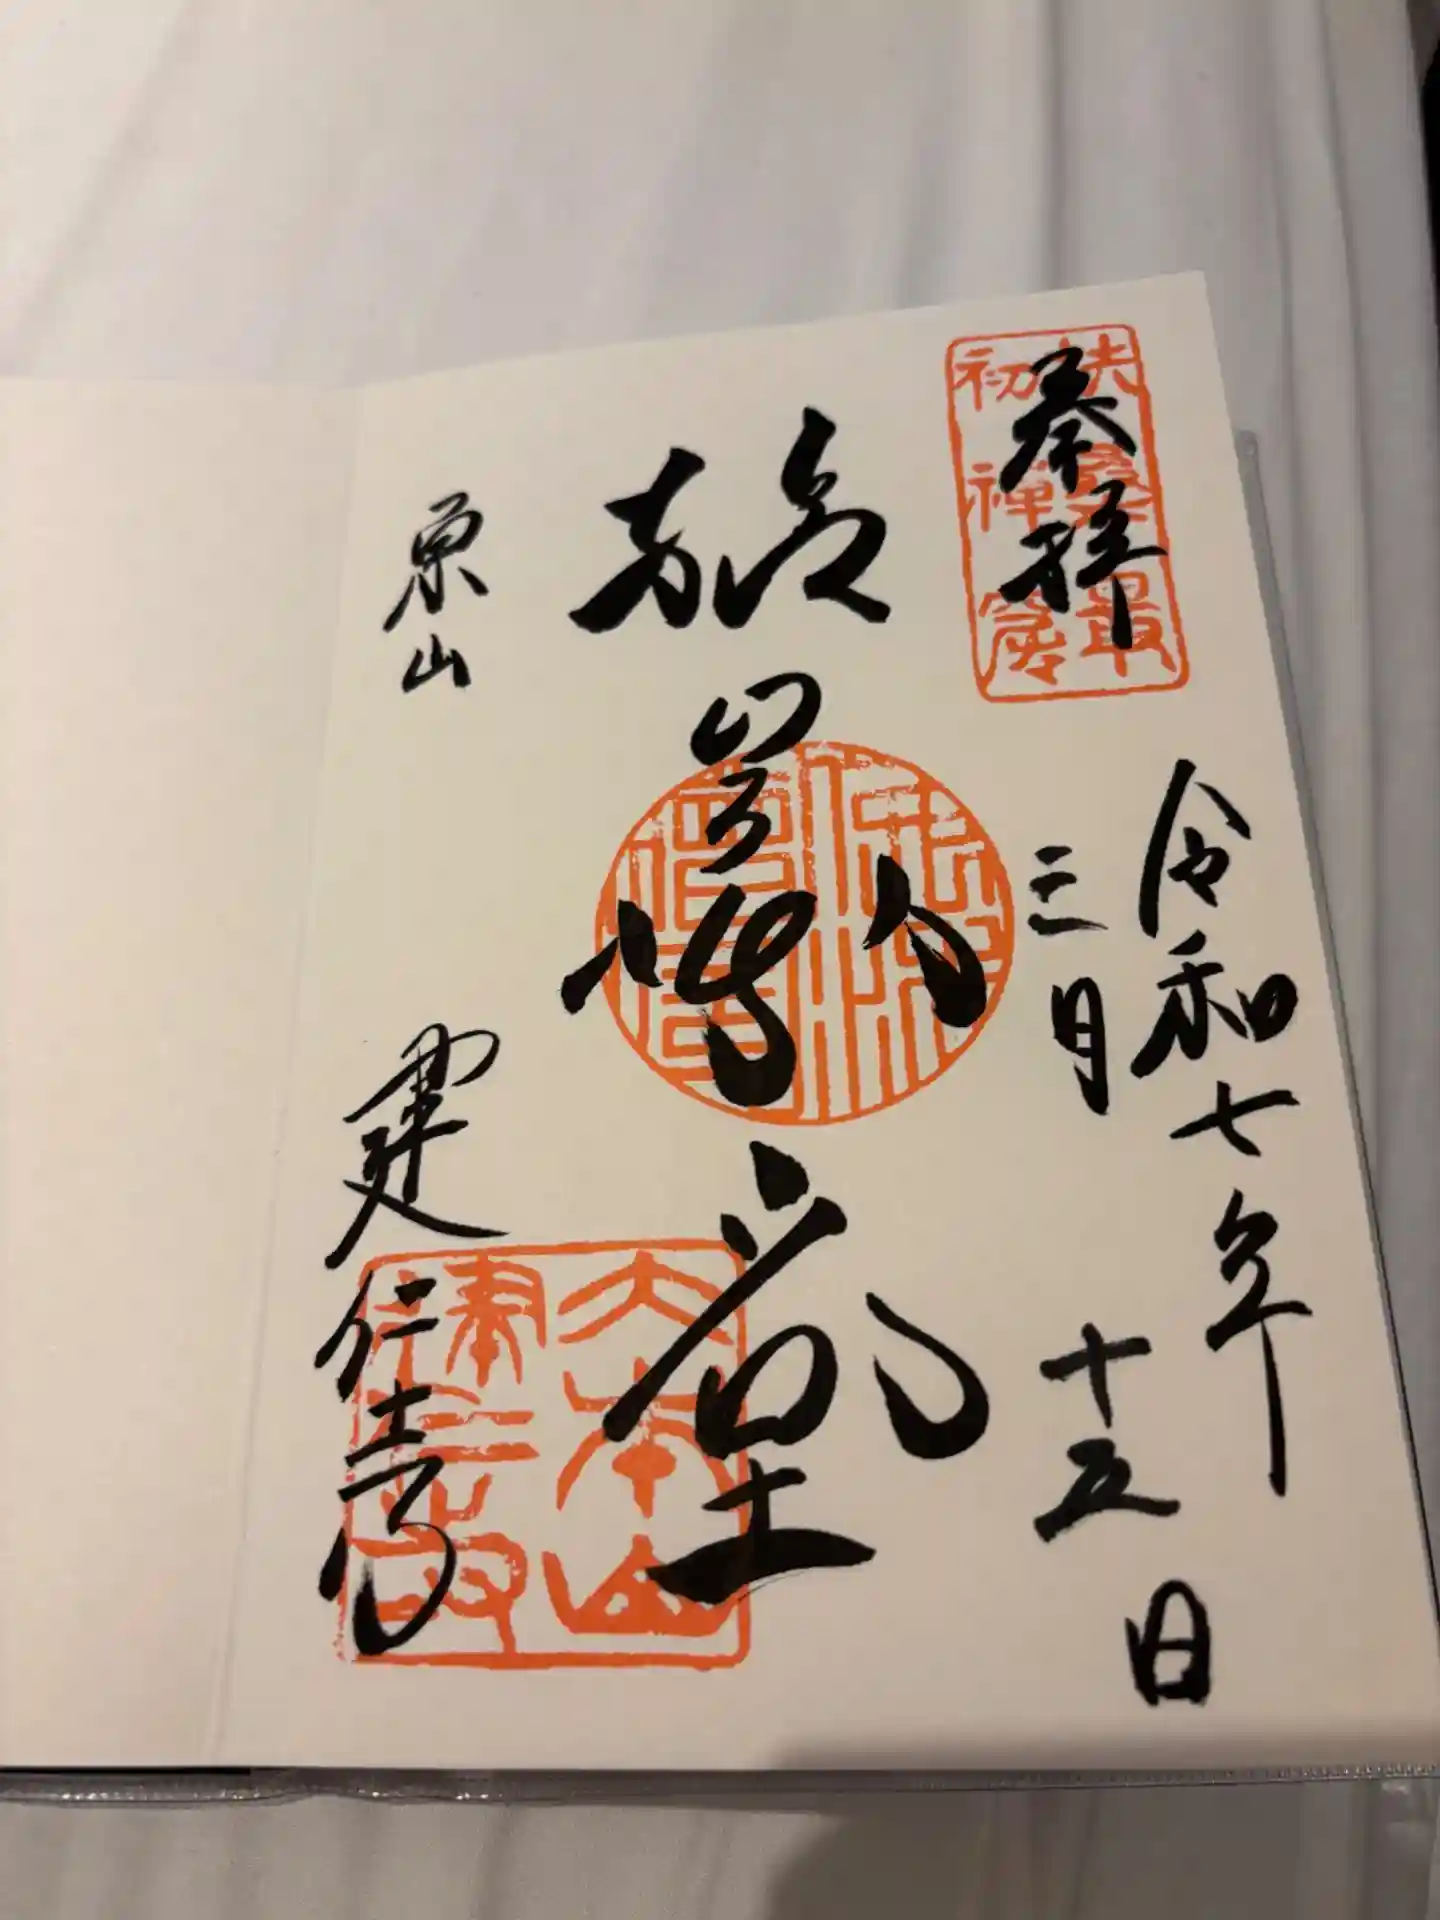 奉拝
扶桑最初禅窟
令和七年
三月十五日
佛法僧寶
堂
東山
建仁寺
大本山